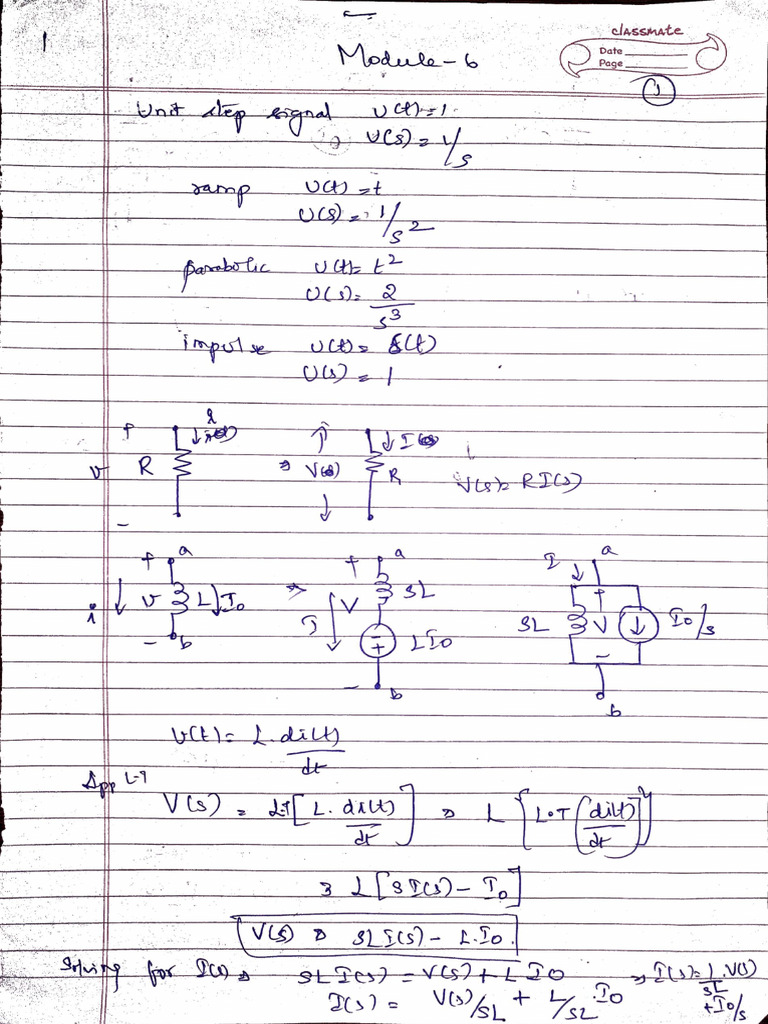 1
Module-6
classmate
Date
Page
1
Unit step signal u(t)=1
⇒ U(s) = 1/s
ramp U(t) = t
U(s) = 1/s²
parabolic U(t) = t²
U(s) = 2/s³
impulse U(t) = δ(t)
U(s) = 1
+ v - R i ⇒ V(s) R I(s) V(s) = R I(s)
+ a i v L I0 - b ⇒ + a I V sL - + L I0 - b
I a sL + V - I0/s b
V(t) = L. di(t)/dt
App L-T
V(s) = L.T [L. di(t)/dt] ⇒ L {L.T (di(t)/dt)}
⇒ L[sI(s) - I0]
V(s) ⇒ sL I(s) - L.I0.
Solving for I(s) ⇒ sL I(s) = V(s) + L I0 ⇒ I(s) = 1/sL . V(s) + I0/s
I(s) = V(s)/sL + L/sL . I0